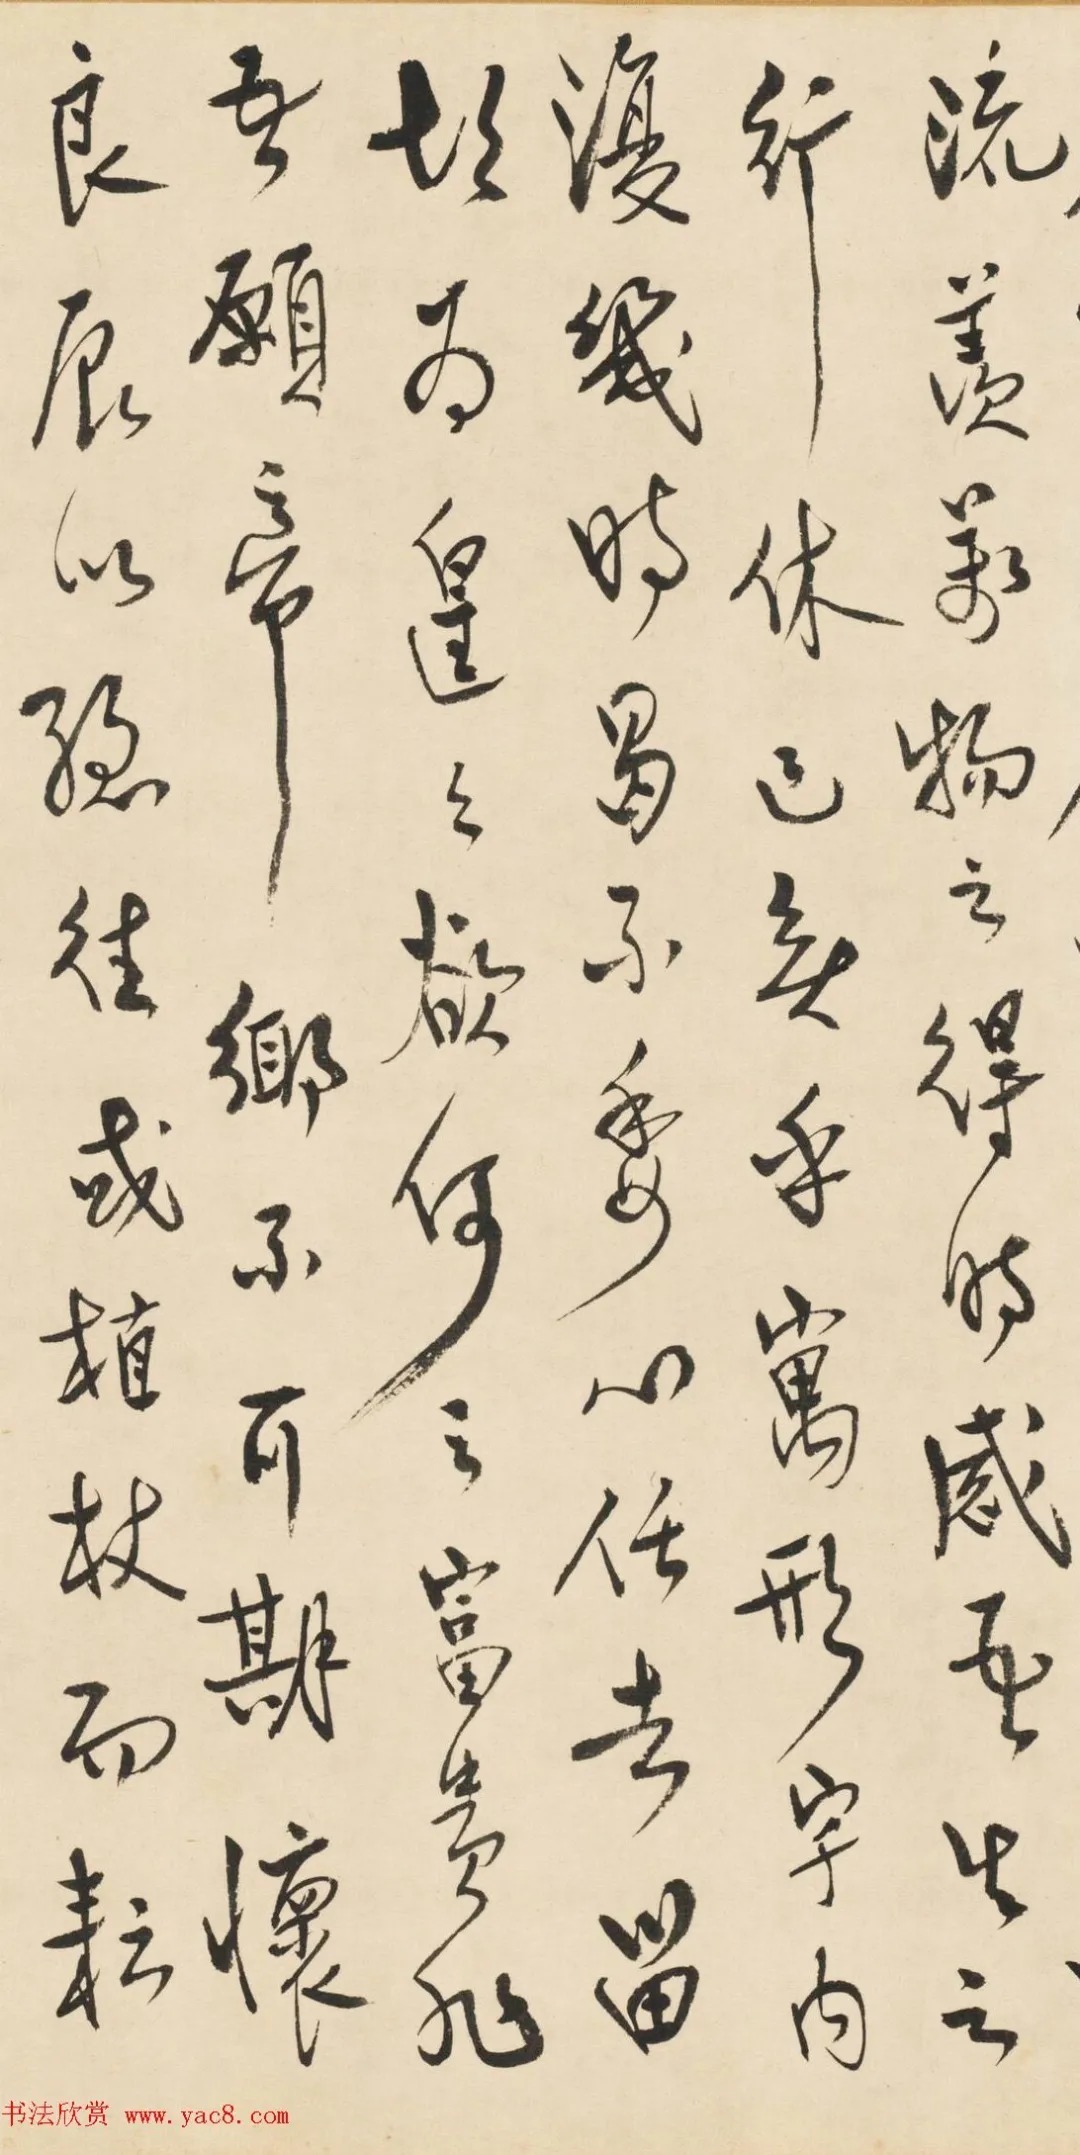 流羡萬物之得時感吾生之
行休已矣乎寓形宇内
復幾時曷不委心任去留
胡為遑々欲何之富貴非
吾願帝鄉不可期懷
良辰以孤往或植杖而耘
书法欣赏 www.yac8.com